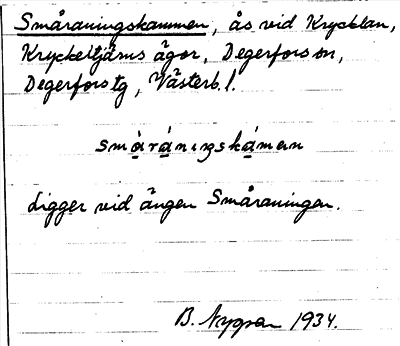 Småraningskammen, ås vid Krycklan,
Kryckeltjärns ägor, Degerfors sn,
Degerfors tg, Västerb. l.
smàránιngskámən
Ligger vid ängen Småraningen.
B. Nygren 1934.